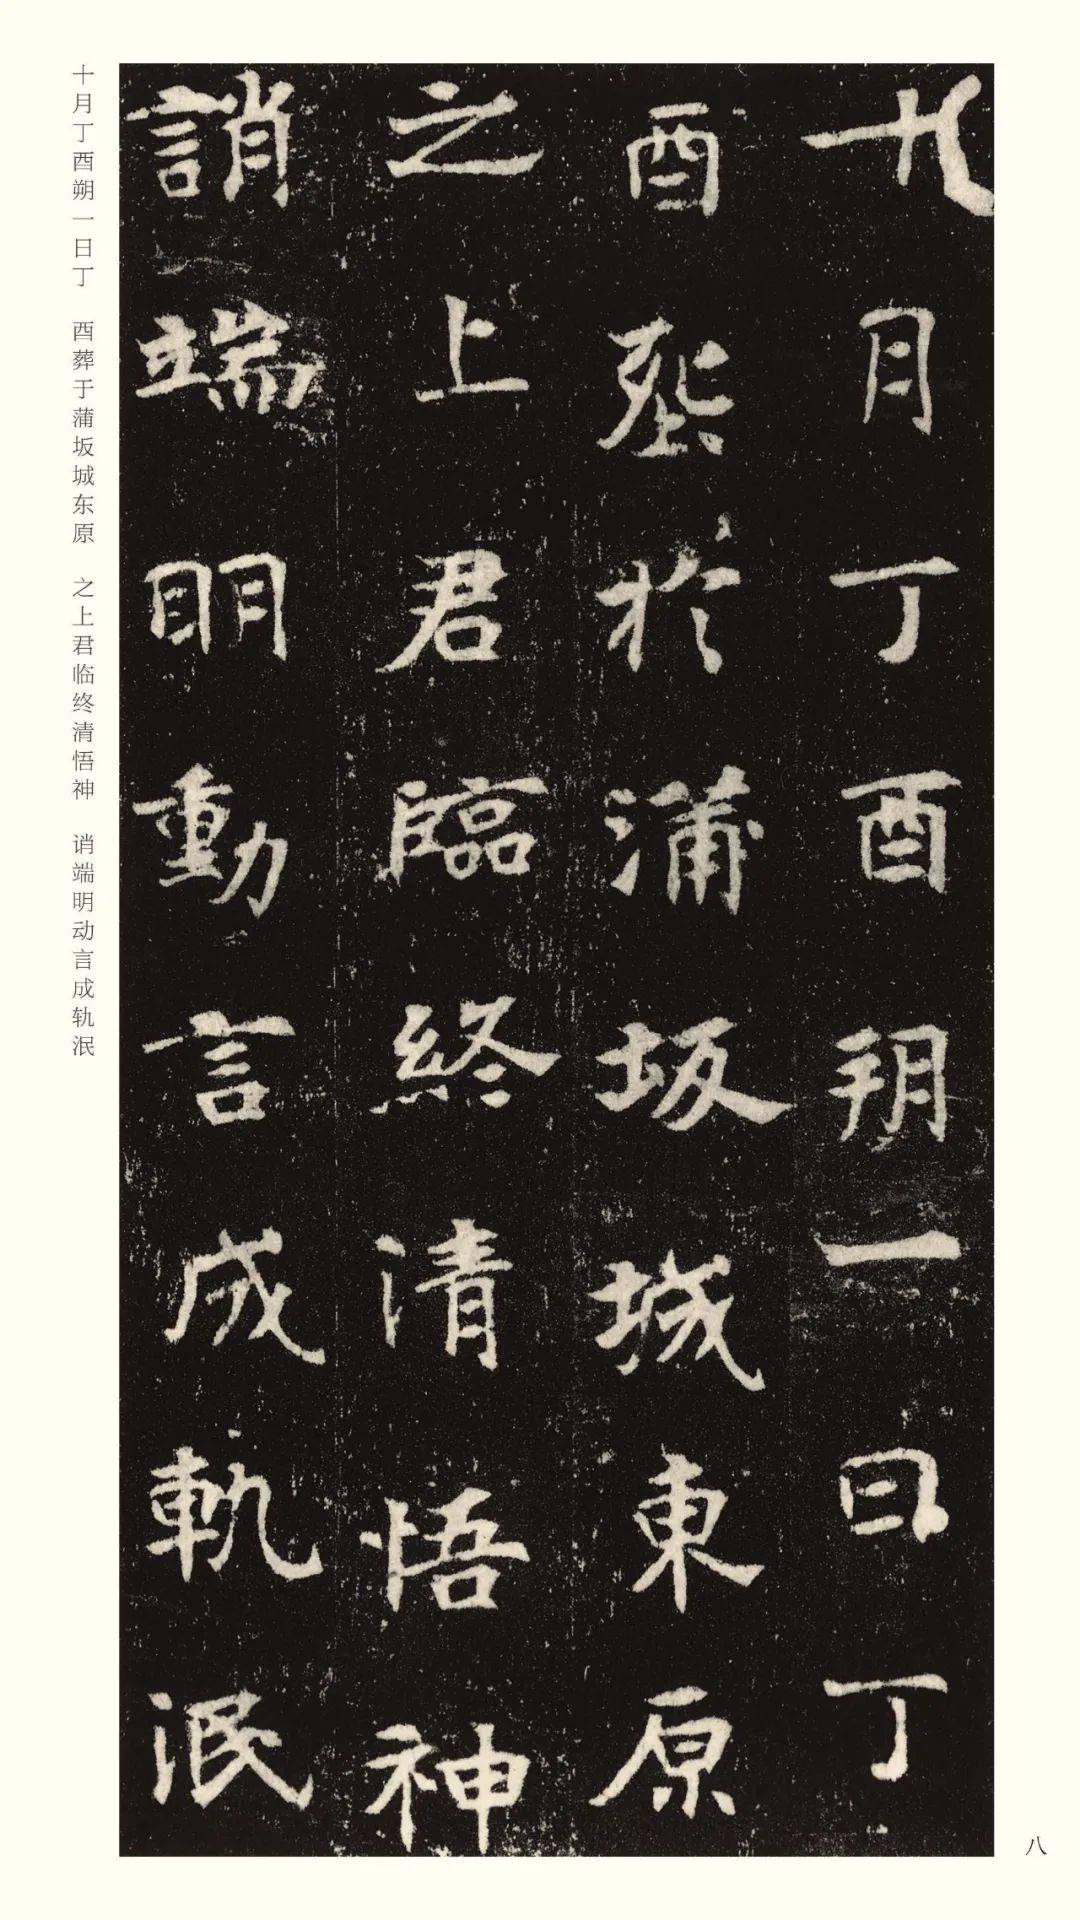 十月丁酉朔一日丁
酉葬於蒲坂城東原
之上君臨終清悟神
誚端明動言成軌泯
十月丁酉朔一日丁　酉葬于蒲坂城东原　之上君临终清悟神　诮端明动言成轨泯
八